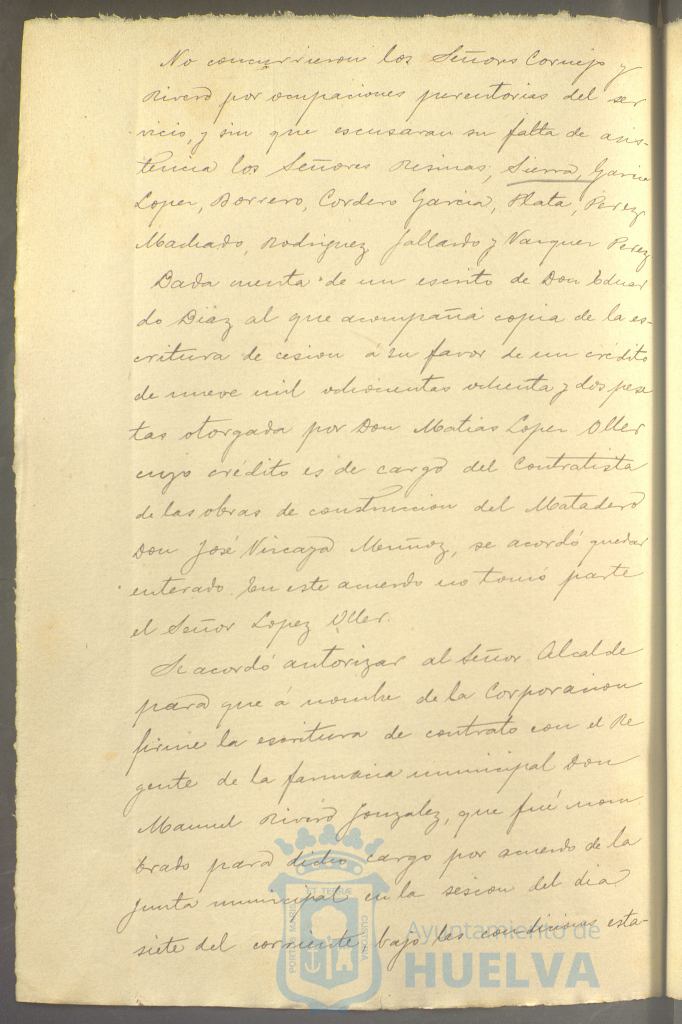 No concurrieron los Señores Cornejo y
Rivero por ocupaciones perentorias del ser
vicio, y sin que escusaran su falta de asis-
tencia los Señores Resinas, Sierra, Garcia
Lopez, Borrero, Cordero Garcia, Plata, Perez
Machado, Rodriguez Gallardo y Vazquez Perez
Dada cuenta de un escrito de Don Eduar
do Diaz al que acompaña copia de la es-
critura de cesion á su favor de un crédito
de nueve mil ochocientas ochenta y dos pese
tas otorgada por Don Matias Lopez Oller
cuyo crédito es de cargo del Contratista
de las obras de construccion del Matadero
Don José Vizcaya Muñoz, se acordó quedar
enterado. En este acuerdo no tomó parte
el Señor Lopez Oller.
Se acordó autorizar al Señor Alcalde
para que á nombre de la Corporacion
firme la escritura de contrato con el Re
gente de la farmacia municipal Don
Manuel Rivero Gonzalez, que fué nom
brado para dicho cargo por acuerdo de la
Junta municipal en la sesion del dia
siete del corriente bajo las condiciones esta-
PORTUS MARIS ET TERRAE CUSTODIA
Ayuntamiento de
HUELVA